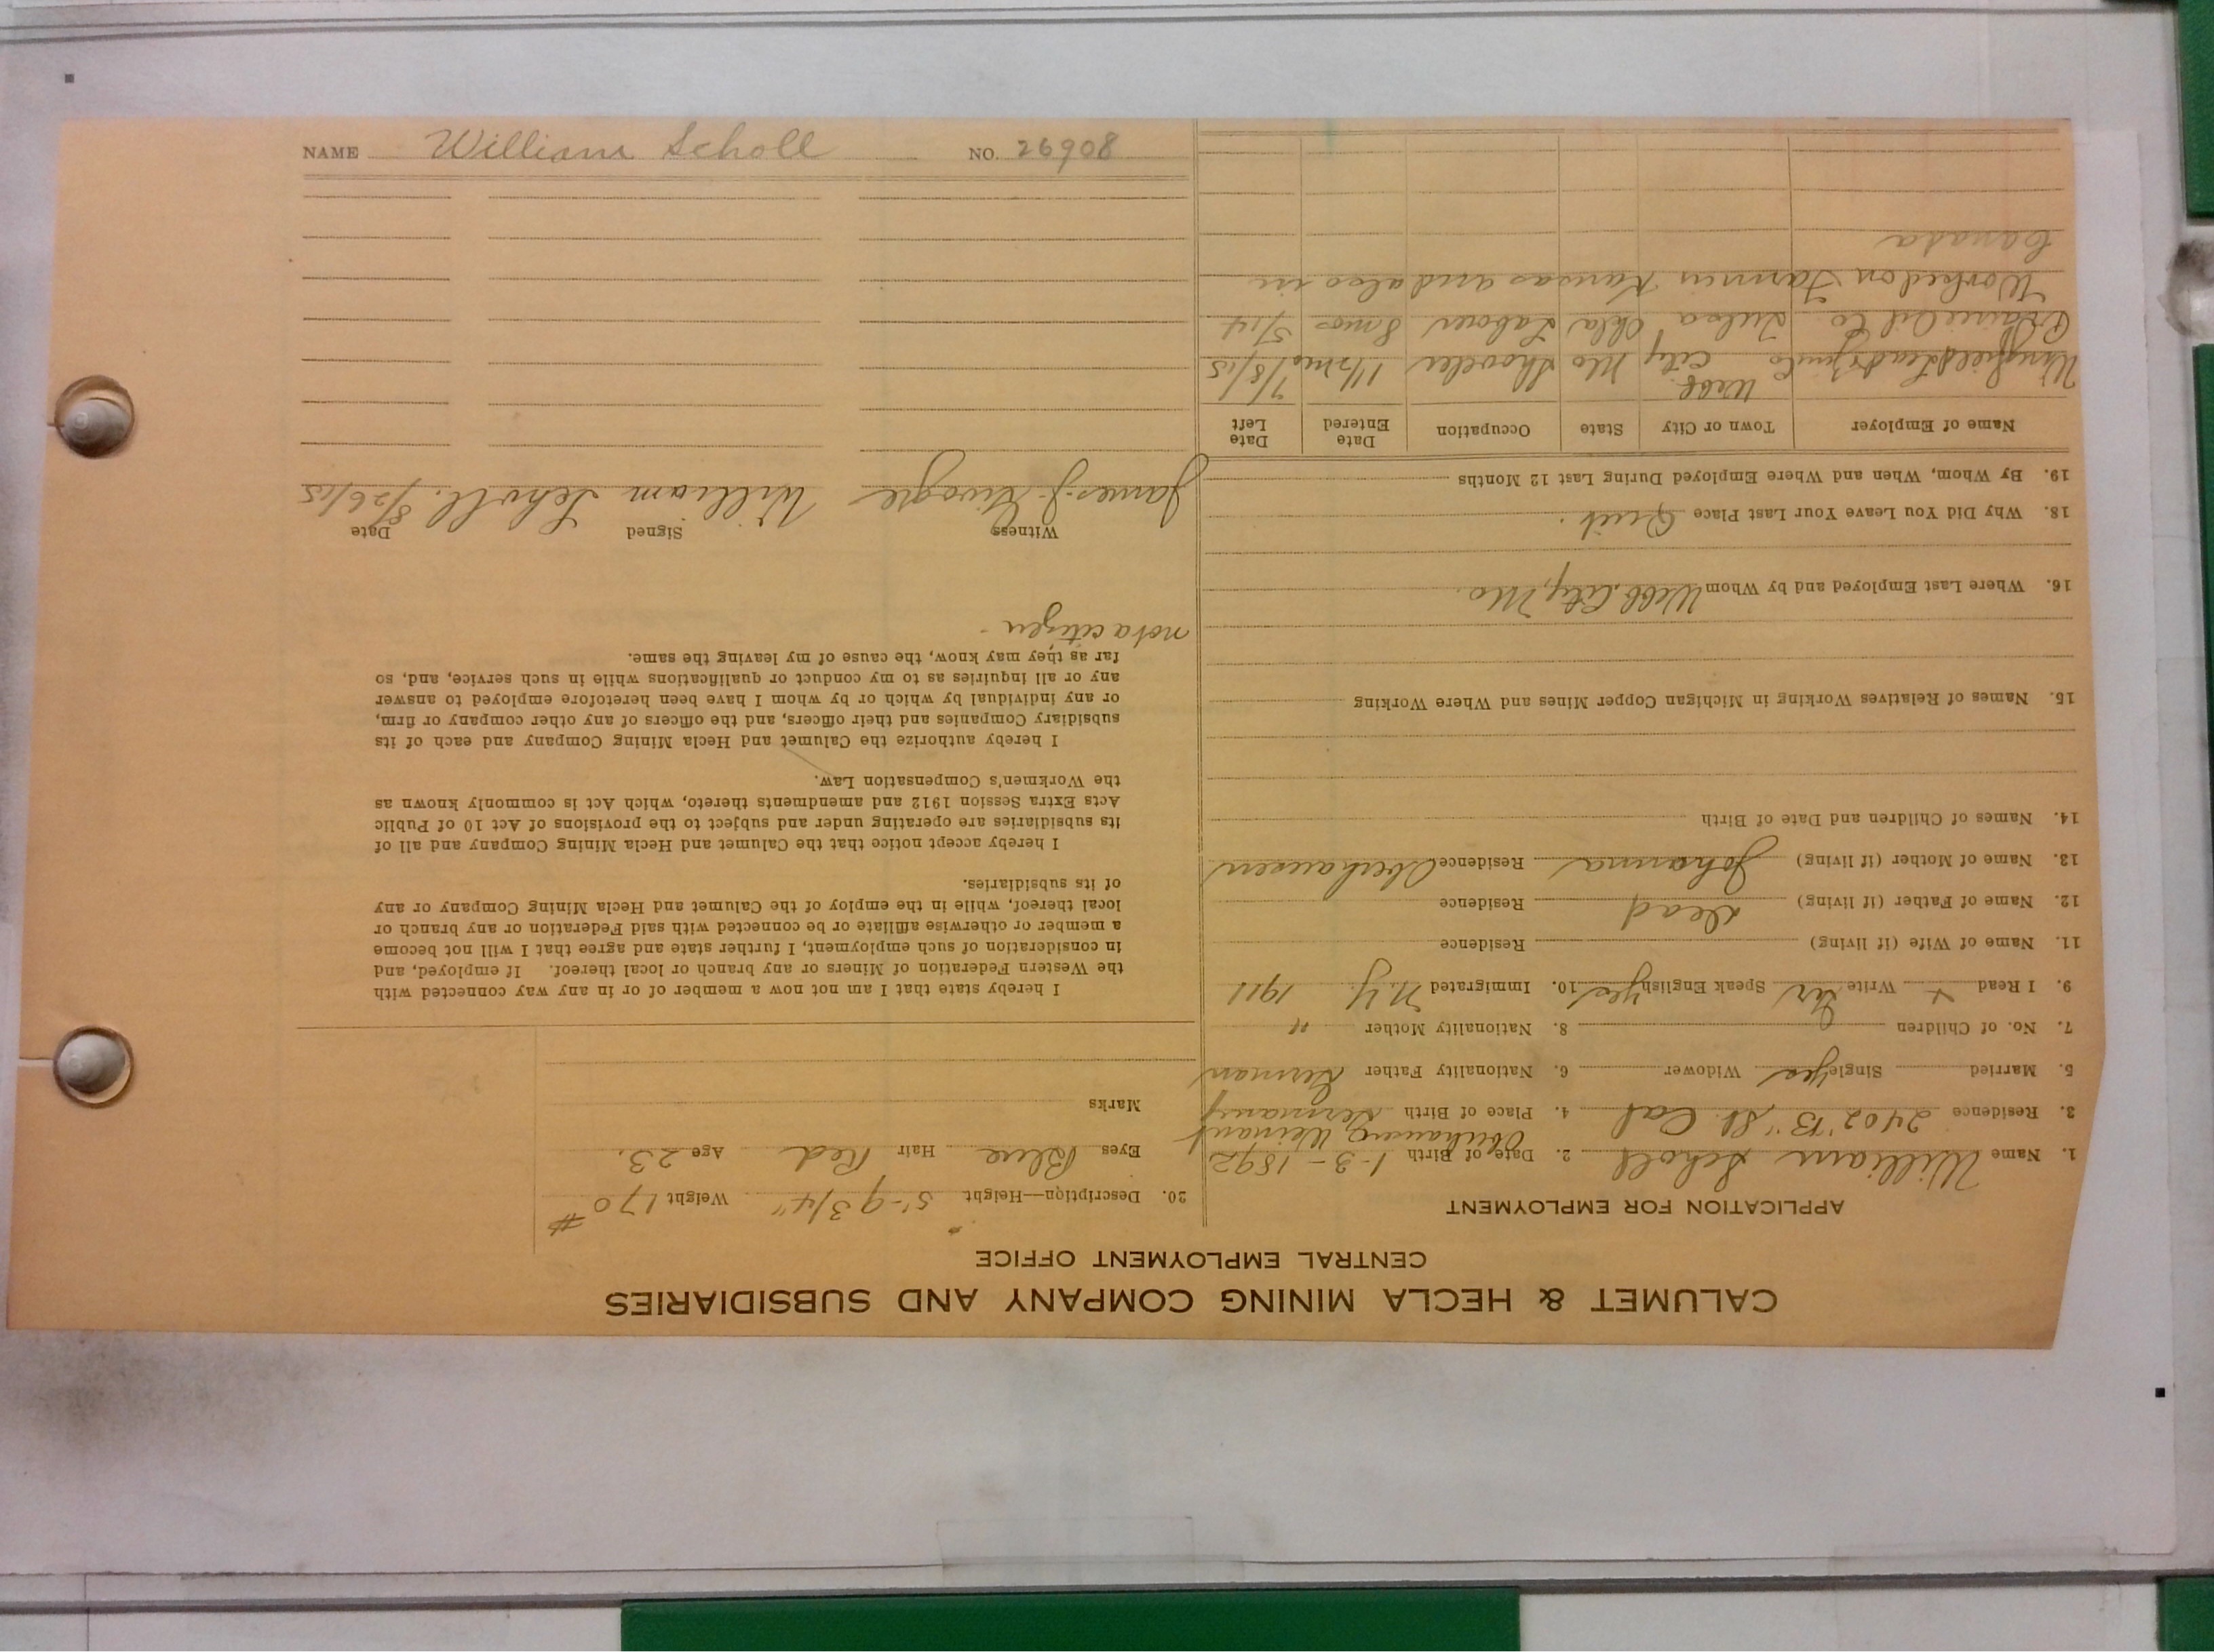 CALUMET & HECLA MINING COMPANY AND SUBSIDIARIES
CENTRAL EMPLOYMENT OFFICE
APPLICATION FOR EMPLOYMENT
1. Name William Scholl 2. Date of Birth 1-3-1892
3. Residence 2402 "B" St. Cal 4. Place of Birth Germany
5. Married Single yes Widower 6. Nationality Father German
7. No. of Children 8. Nationality Mother "
9. I Read + Write Ger Speak English yes 10. Immigrated N.Y. 1911
11. Name of Wife (if living) Residence
12. Name of Father (if living) Dead Residence
13. Name of Mother (if living) Johanna Residence Oberhausen
14. Names of Children and Date of Birth
15. Names of Relatives Working in Michigan Copper Mines and Where Working
16. Where Last Employed and by Whom Webb City, Mo.
18. Why Did You Leave Your Last Place Quit.
19. By Whom, When and Where Employed During Last 12 Months
Name of Employer Town or City State Occupation Date Entered Date Left
Webb
City Mo Shoveler 1 1/2 mo 7/8/15
Prairie Oil Co. Tulsa Okla Laborer 8 mos 5/14
Worked on Farm in Kansas and also in
Canada
20. Description—Height 5'-9 3/4" Weight 170 #
Eyes Blue Hair Red Age 23.
Marks
I hereby state that I am not now a member of or in any way connected with
the Western Federation of Miners or any branch or local thereof. If employed, and
in consideration of such employment, I further state and agree that I will not become
a member or otherwise affiliate or be connected with said Federation or any branch or
local thereof, while in the employ of the Calumet and Hecla Mining Company or any
of its subsidiaries.
I hereby accept notice that the Calumet and Hecla Mining Company and all of
its subsidiaries are operating under and subject to the provisions of Act 10 of Public
Acts Extra Session 1912 and amendments thereto, which Act is commonly known as
the Workmen's Compensation Law.
I hereby authorize the Calumet and Hecla Mining Company and each of its
subsidiary Companies and their officers, and the officers of any other company or firm,
or any individual by which or by whom I have been heretofore employed to answer
any or all inquiries as to my conduct or qualifications while in such service, and, so
far as they may know, the cause of my leaving the same.
not a citizen
Witness Signed Date
James J. William Scholl. 8/26/15
NAME William Scholl NO. 26908